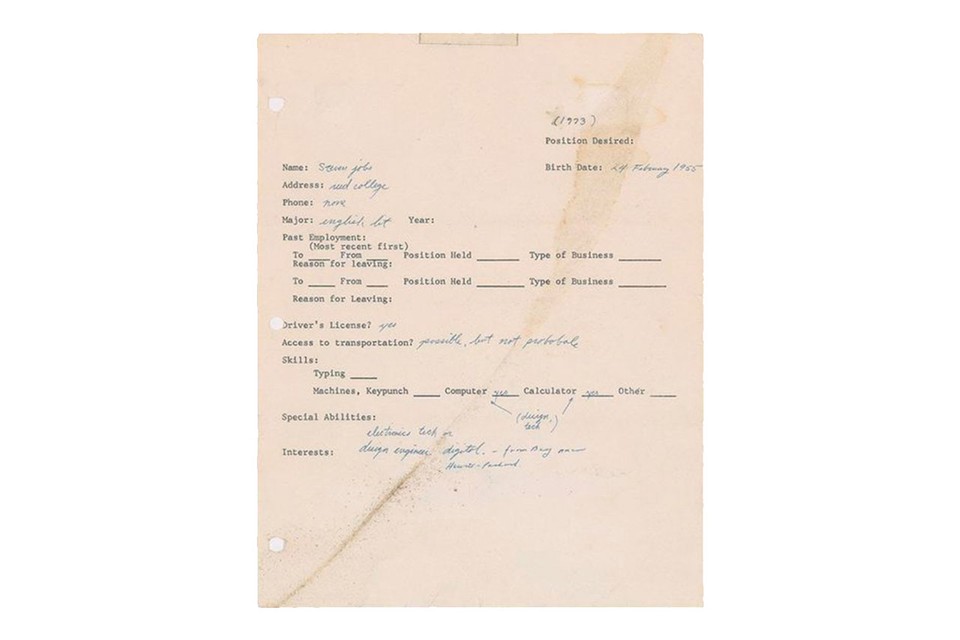 (1973)
Position Desired:
Name: Steven jobs
Birth Date: 24 February 1955
Address: reed college
Phone: none
Major: english lit Year:
Past Employment:
(Most recent first)
To ____ From ____ Position Held ________ Type of Business ________
Reason for leaving:
To ____ From ____ Position Held ________ Type of Business ________
Reason for Leaving:
Driver's License? yes
Access to transportation? possible, but not probable
Skills:
Typing ____
Machines, Keypunch ____ Computer yes Calculator yes Other ____
(design, tech)
Special Abilities:
electronics tech or
Interests: design engineer. digital. - from Bay
Hewitt-Packard